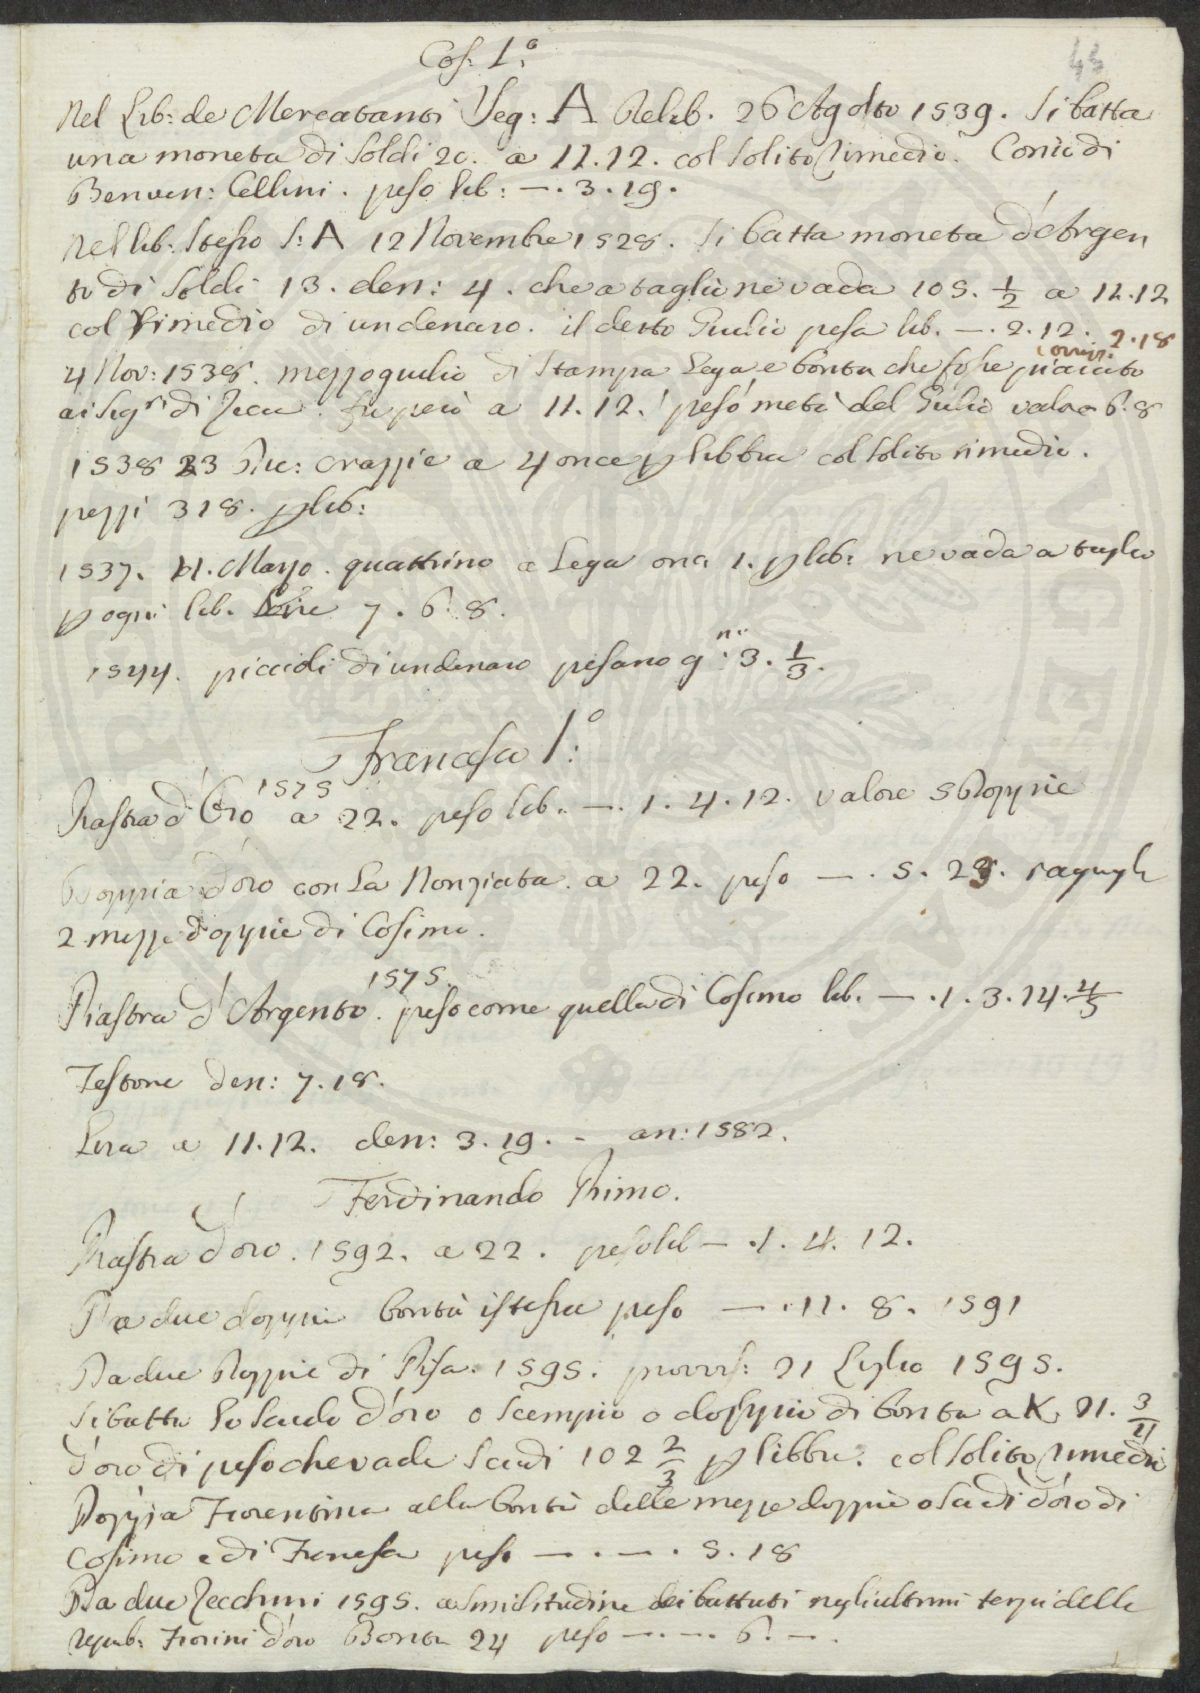 Cos: 1.º
45
Nel Lib: de Mercatanti Seg: A Delib. 26 Agosto 1539. Si batta
una moneta di Soldi 20. a 11.12. col solito rimedio. Conii di
Benven: Cellini. peso lib: —. 3. 19.
Nel lib: Stesso S: A 12 Novembre 1528. Si batta moneta d'Argen
to di Soldi 13. den: 4. che a taglio ne vada 105. 1/2 a 11.12
col Rimedio di un denaro. il detto Giulio pesa lib. —. 2. 12. 2.18
4 Nov: 1538. mezzo giulio di Stampa Lega e bontà che fosse piaciuto
ai Sig.ri di Zecca. fu però a 11.12. pesò metà del Giulio valore 6.8
1538 23 Dic: crazzie a 4 once p libbra col solito rimedio.
pezzi 318. p lib:
1537. Marzo. quattrino a Lega onc. 1. p lib: ne vada a taglio
p ogni lib. Lire 7. 6. 8.
1544. piccioli di un denaro pesano g.ni 3. 1/3.
Francesco 1.º
Piastra d'Oro 1575 a 22. peso lib. —. 1. 4. 12. valore 5 Doppie
Doppia d'oro con La Nonziata. a 22. peso —. 5. 23. ragugl
2 mezze doppie di Cosimo.
Piastra d'Argento 1575. peso come quella di Cosimo lib. —. 1. 3. 14. 4/5
Testone den: 7. 18.
Lira a 11.12. den: 3. 19. - an: 1582.
Ferdinando Primo.
Piastra d'oro. 1592. a 22. peso lib — . 1. 4. 12.
Da due doppie bontà istessa peso — . 11. 8. 1591
Da due Doppie di Pisa. 1595. provvis: 21 Luglio 1595.
Si batta lo Scudo d'oro o Scempio o doppio di bontà a K. 21. 3/11
d'oro di peso che vada Scudi 102 2/3 p libbra. col solito rimedio
Doppia Fiorentina alla bontà delle mezze doppie o Scudi d'oro di
Cosimo e di Francesco peso — . — . 5. 18
Da due Zecchini 1595. a similitudine dei battuti negli ultimi tempi della
repub: Fiorini d'oro Bontà 24 peso — . — . 6. —.